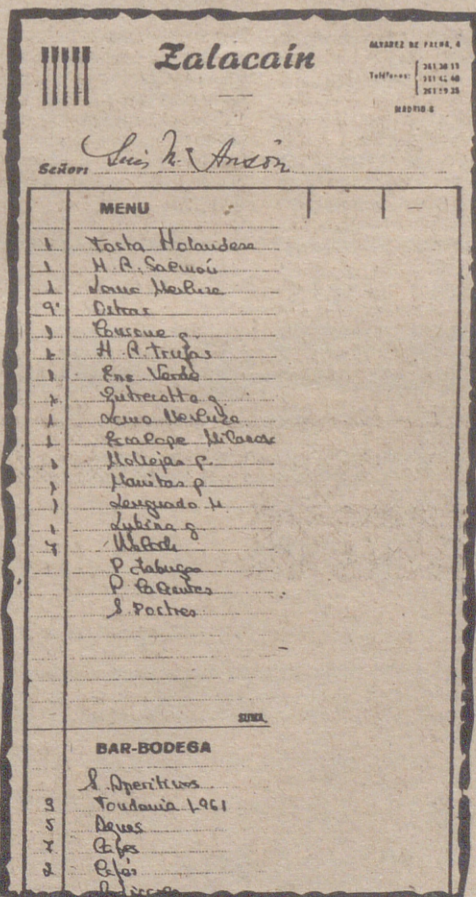 Zalacaín
ALVAREZ DE BAENA, 4
Teléfonos:
261 48 40
261 19 35
MADRID-6
Señor: Luis M. Ansón
MENU
1 Tosta Holandesa
1 H. R. Salmón
1 Lomo Merluza
9 Ostras
Consome g.
H. R. Trufas
Ens Verde
Entrecotte g
Lomo Merluza
1 Escalope Milanose
Mollejas p.
Manitas p
Lenguado M
Lubina g
P Jabugo
P Calientes
S. Postres
SUMA.
BAR-BODEGA
S. Aperitivos
3 Tondonia 1961
5 Aguas
Cafes
2 Cafés